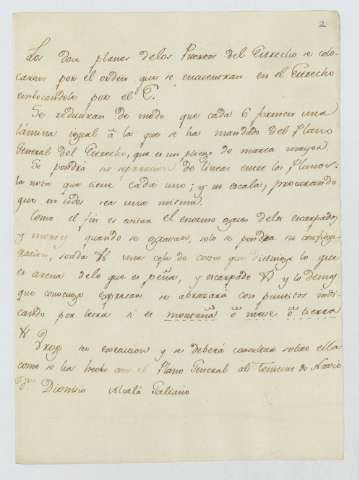 2
Los doce planos de los Puertos del Estrecho se colo-
caran por el orden que se encuentran en el Estrecho
embocandole por el E.
Se reduciran de modo que cada 6 formen una
lámina igual á la que se ha mandado del Plano
General del Estrecho, que es un pliego de marca mayor.
Se pondrá su separacion de lineas entre los Planos,
la nota que tiene cada uno; y su escala, procurando
que en todos sea una misma.
Como el fin es evitar el enorme de los escarpados
y quando se egecutan, solo se pondrá su configu-
racion, una que distinga lo que
es arena de lo que es peña, y escarpado y lo demas
que convenga expresar se abrazará con puntitos indi-
cando por letra si es montaña ó nieve ó tierra
su execucion y se deberá consultar sobre ella
como se ha hecho con el Plano General al Teniente de Navio
Dn Dionisio Alcalá Galiano